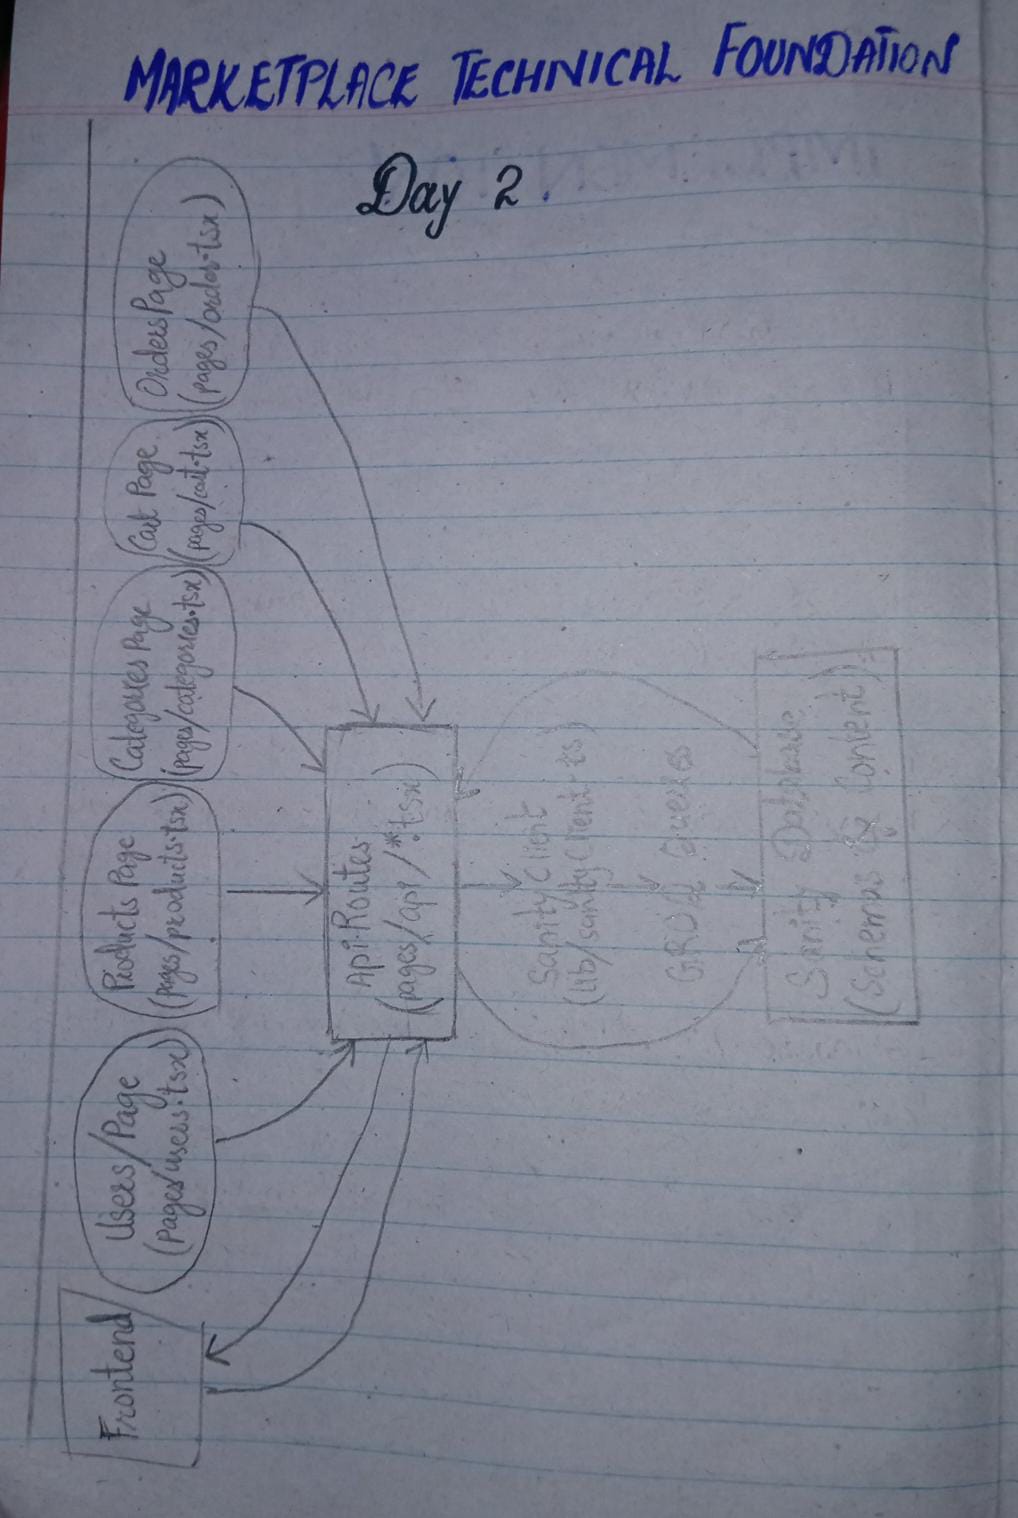 MARKETPLACE TECHNICAL FOUNDATION
Day 2.
Frontend
Users/Page
(Pages/users.tsx)
Products Page
(pages/products.tsx)
Categories Page
(pages/categories.tsx)
Cart Page
(pages/cart.tsx)
Orders Page
(pages/order.tsx)
Api-Routes
(pages/api/*.tsx)
Sanity Client
(lib/sanityClient.ts)
GROQ Queries
Sanity Database
(Schemas & Content)